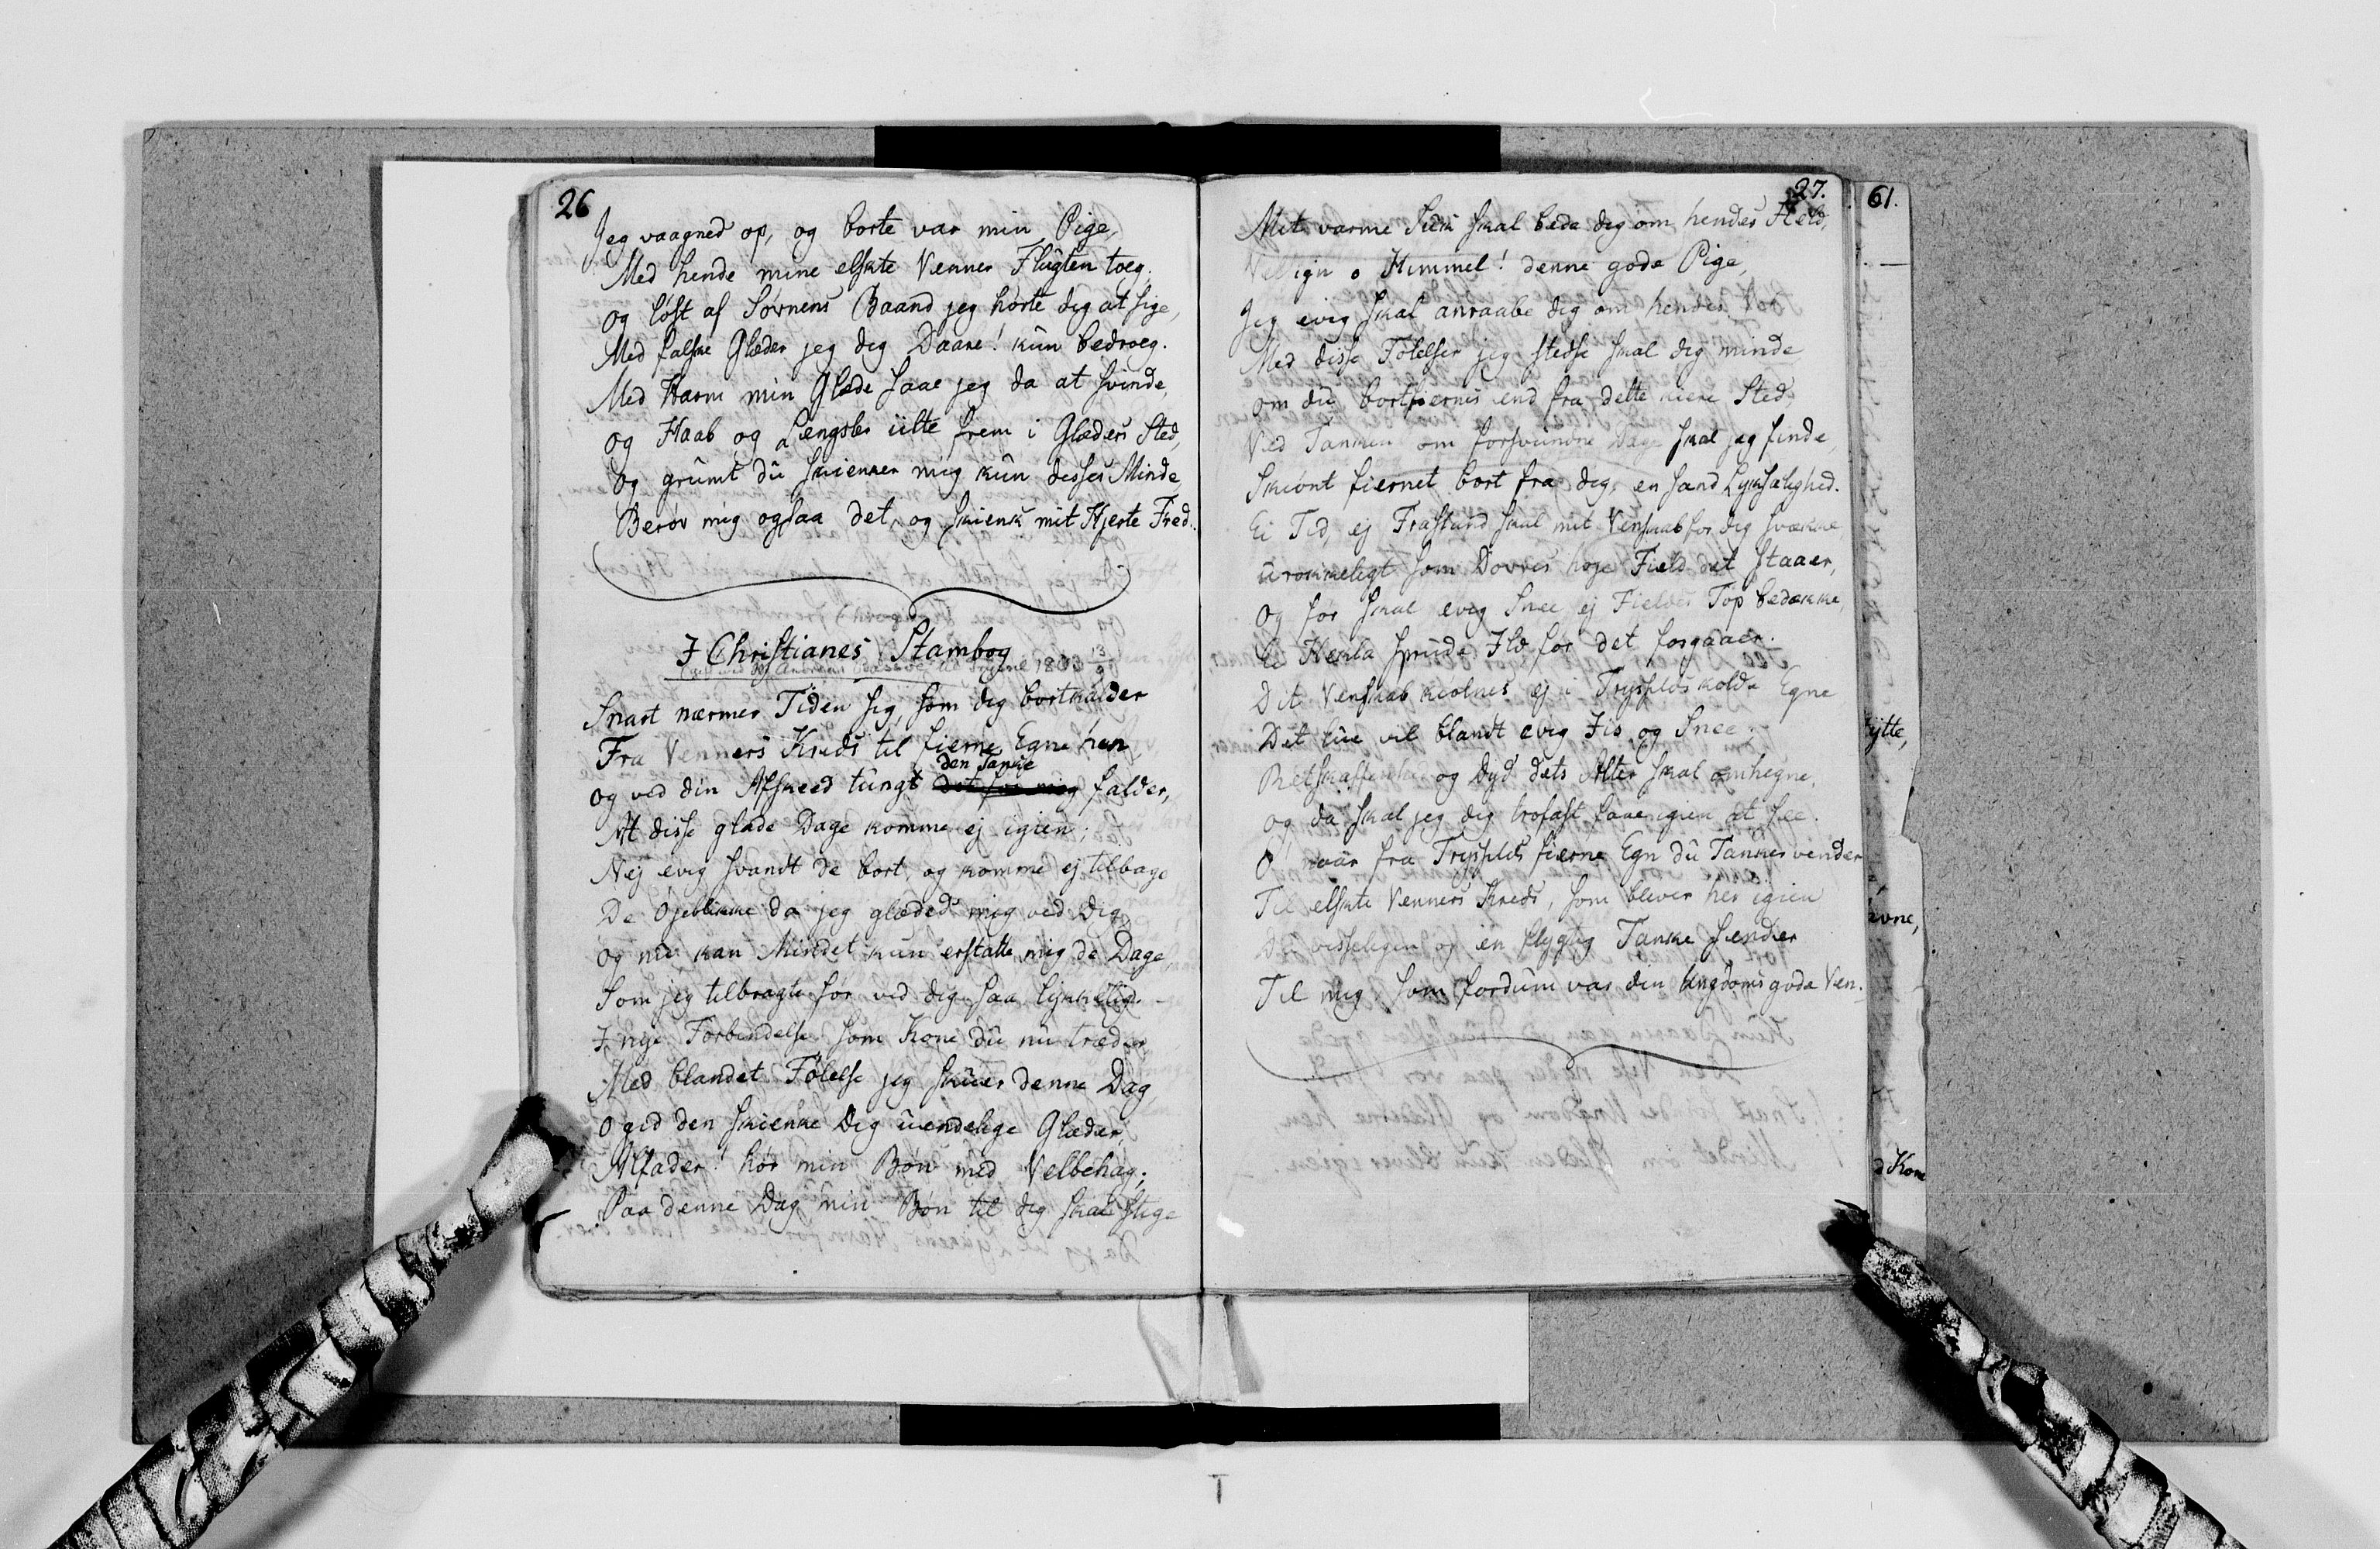 26
Jeg vaagned op, og borte var min Pige,
Med hende mine elskte Venner Flugten toeg.
Og løst af Søvnens Baand jeg hørte dig at sige,
Med falske Glæder jeg dig Daare! kun bedroeg.
Med Harm min Glæde saae jeg da at svinde,
Og Haab og Længsler iilte frem i Glædens Sted,
Og grumt du skienker mig kun disses Minde,
Berøv mig ogsaa det, og skienk mit Hjerte Fred.
I Christianes Stambog
1803 13/9
Snart nærmer Tiden sig, som dig bortkalder
Fra Venners Kreds til fierne Egne hen,
den Tanke
Og ved din Afskeed tungt det for mig falder,
At disse glade Dage komme ej igien;
Nej evig svandt de bort, og komme ej tilbage
De Øjeblikke da jeg glæded mig ved Dig,
Og nu kan Mindet kun erstatte mig de Dage
Som jeg tilbragte før ved dig saa lykkelig.
I nye Forbindelse som Kone du nu træder
Med blandet Følelse jeg skuer denne Dag,
O gid den skienke Dig uendelige Glæder,
Alfader! hør min Bøn med Velbehag;
Paa denne Dag min Bøn til dig skal stige
27.
Mit varme Suk skal bede dig om hendes Held,
Velsign o Himmel! denne gode Pige,
Jeg evig skal anraabe dig om hendes Vel
Med disse Følelser jeg stedse skal dig minde
Om du bortfiernes end fra dette kiere Sted
Ved Tanken om forsvundne Dage skal jeg finde,
Skiønt fiernet bort fra dig, en sand Lyksalighed.
Ei Tid, ej Frastand skal mit Venskab for dig svække
Urokkeligt som Dovres høje Field det staaer,
Og før skal evig Snee ej Fieldes Top bedække,
Ei Hekla sprude Ild før det forgaaer.
Dit Venskab kiølnes ej i Trysilds kolde Egne
Det lue vil blandt evig Iis og Snee.
Retskaffenhed og Dyd dets Alter skal omhegne,
Og da skal jeg dig trofast faae igien at see.
O naar fra Trysilds fierne Egn du Tanker vender
Til elskte Venners Kreds, som bliver her igien
Du visseligen og en flygtig Tanke sender
Til mig, som fordum var din Ungdoms gode Ven.
61.
ytte,
evne,
Kone